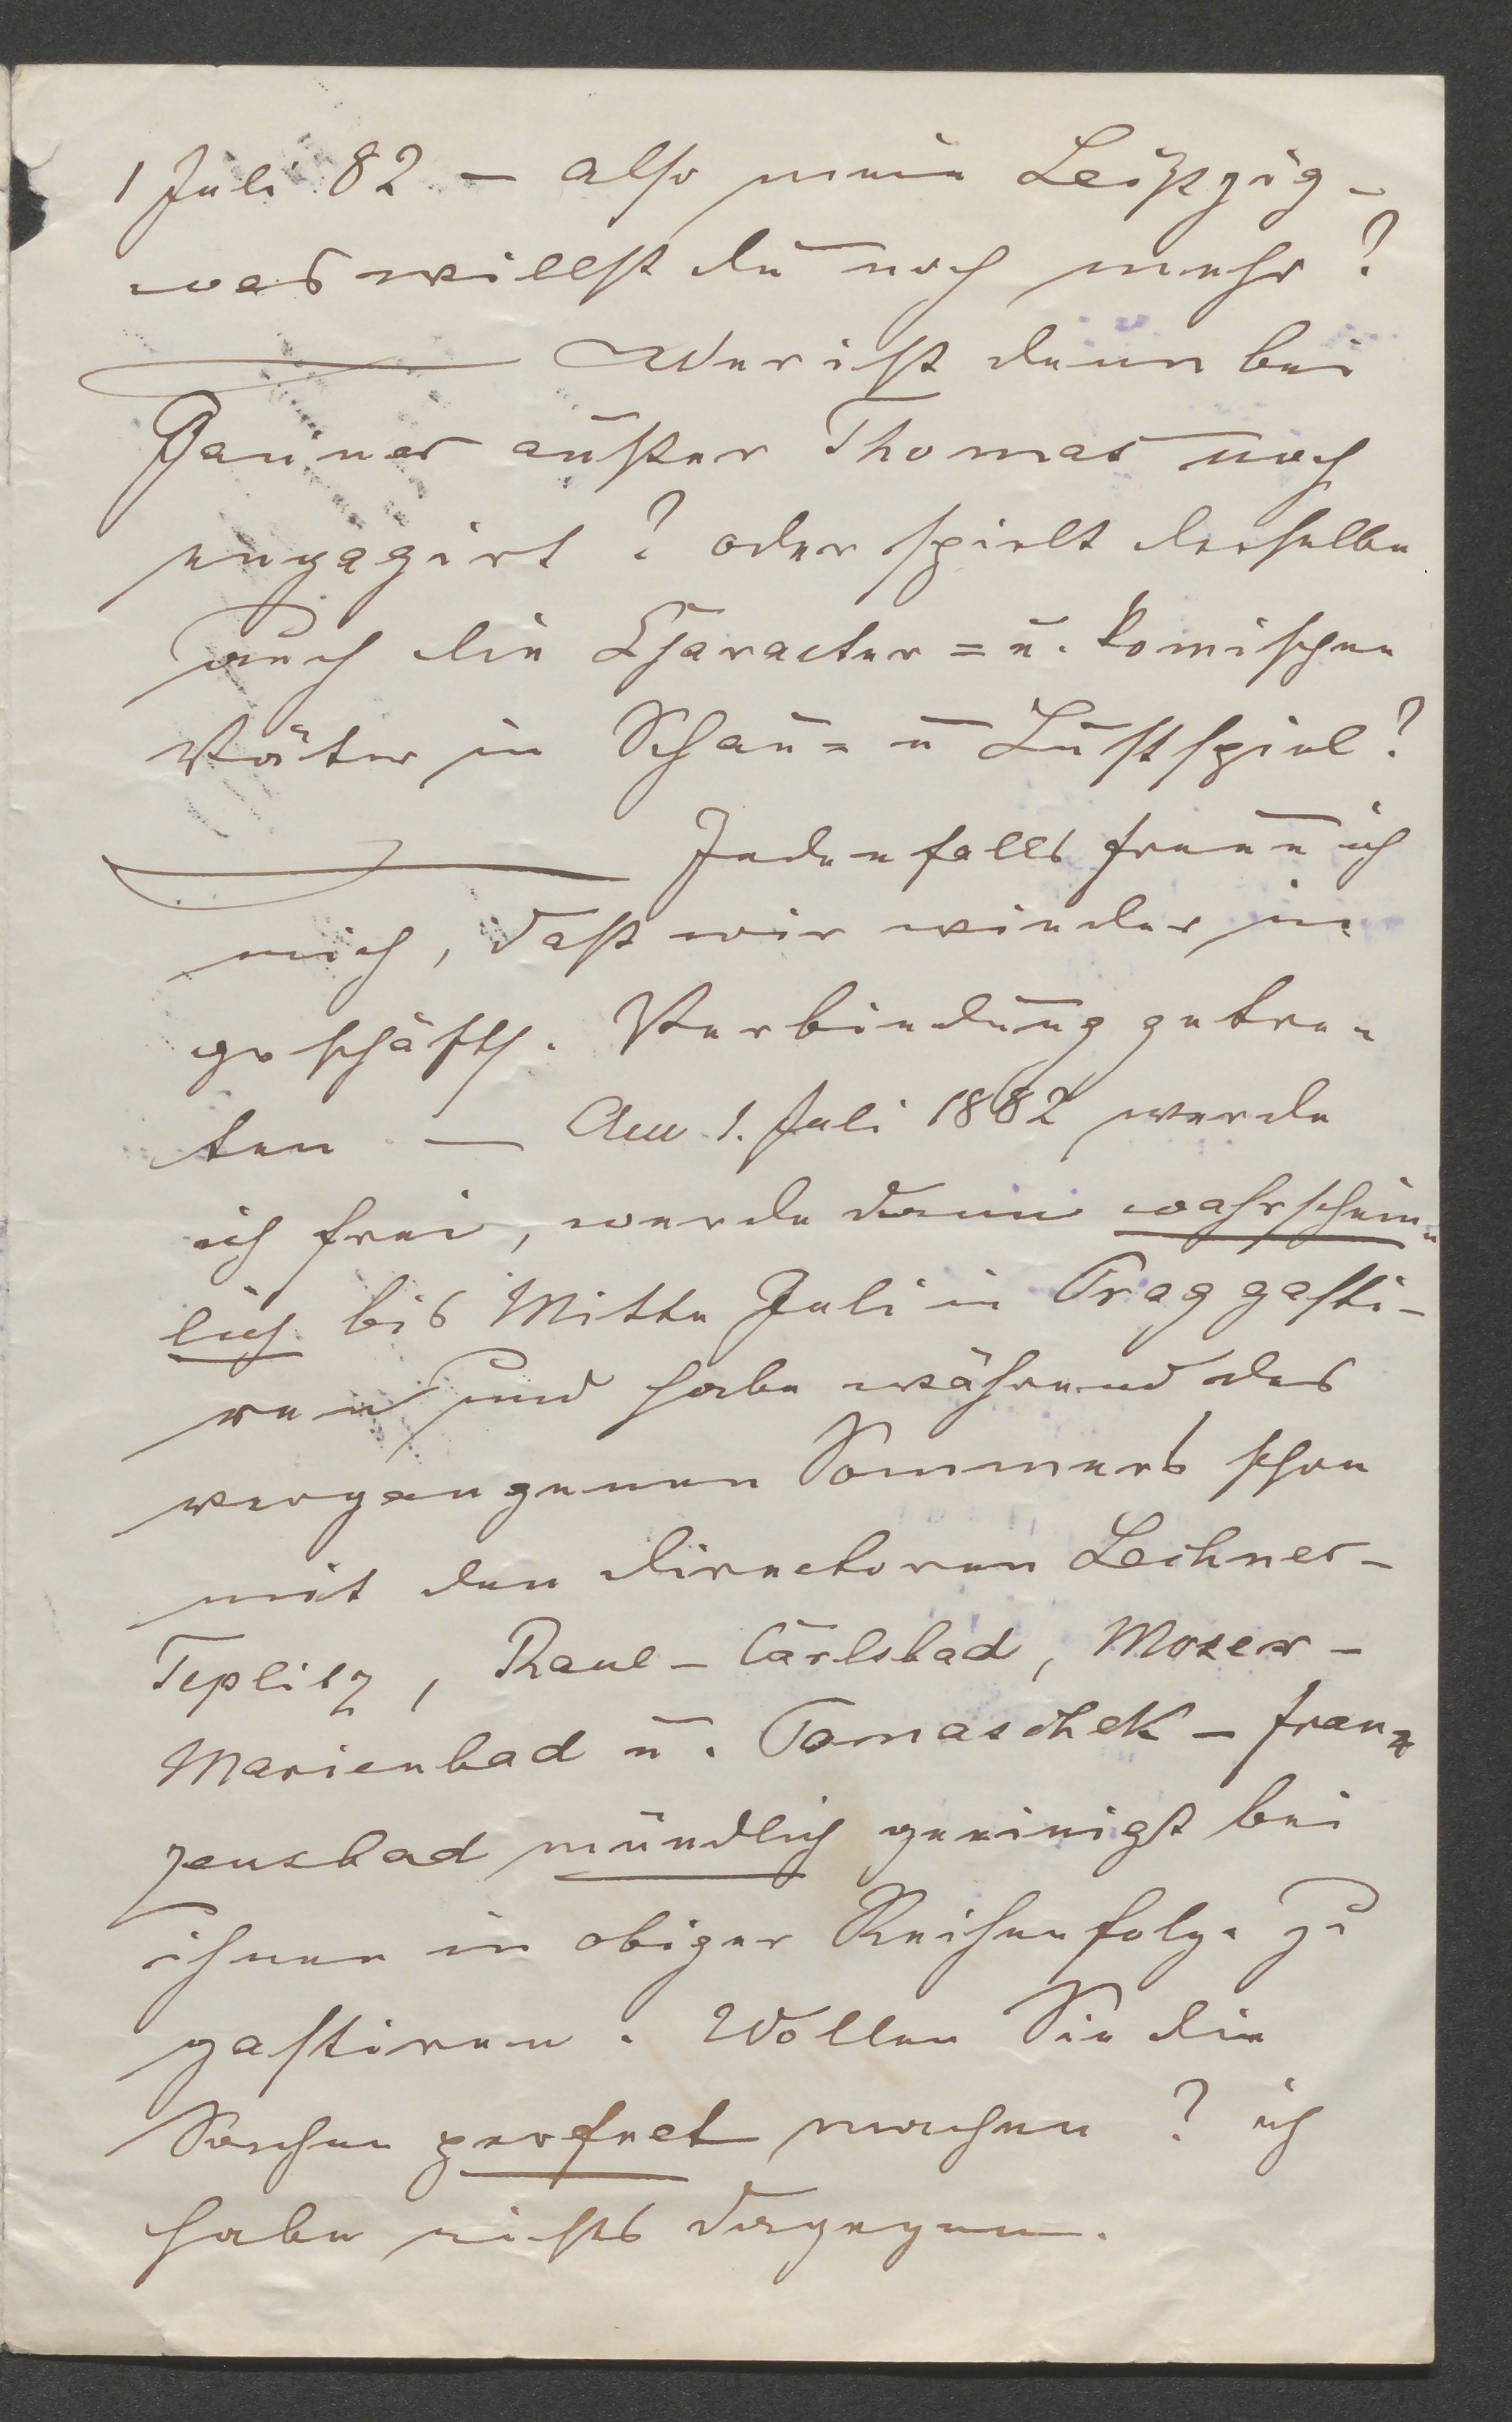 1 Juli 82 – also mein Leipzig –
was willst du noch mehr?
Wer ist denn bei
außer Thomas noch
engagirt? oder spielt derselbe
auch die Character= u. komischen
Väter in Schau= u Lustspiel?
Jedenfalls freue ich
mich, daß wir wieder in
geschäftl. Verbindung getre=
ten — Am 1. Juli 1882 werde
ich frei, werde dann wahrschein=
lich bis Mitte Juli in Prag gasti–
ren und habe während des
vergangenen Sommers schon
mit den Directoren Lechner–
Teplitz, Raul – Carlsbad, Moser –
Marienbad u. Tomaschek – Fran=
zensbad mündlich geeinigt bei
ihnen in obiger Reihenfolge zu
gastiren. Wollen Sie die
Sachen perfect machen? ich
habe nichts dagegen.